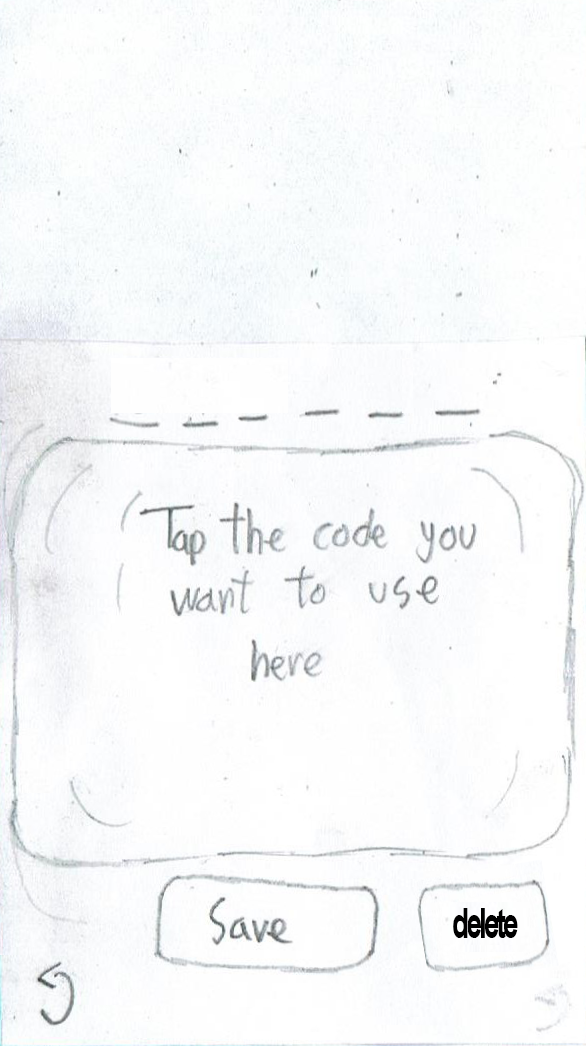 Tap the code you
want to use
here
Save
delete